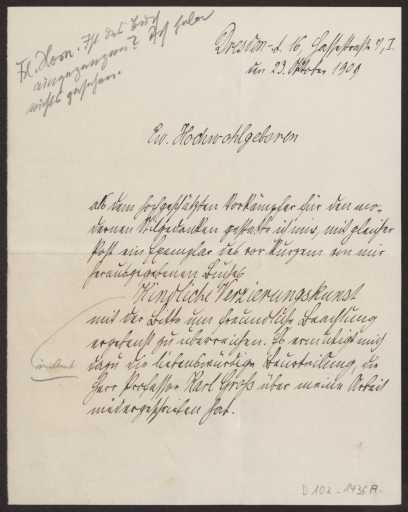 Frl. Horn. Ist das Buch
eingegangen? Ich habe
nichts gesehen.
Dresden-A. 16, Hassestraße 7, I.
den 23. Oktober 1909
Ew. Hochwohlgeboren
als dem hochgeschätzten Vorkämpfer für den mo-
dernen Stilgedanken gestatte ich mir, mit gleicher
Post ein Exemplar des vor kurzem von mir
herausgegebenen Buches
Kindliche Verzierungskunst
mit der Bitte um freundliche Beachtung
ergebenst zu überreichen. Es ermutigt mich
dazu die liebenswürdige Beurteilung, die
Herr Professor Karl Groß über meine Arbeit
niedergeschrieben hat.
D 102 - 1436 A.